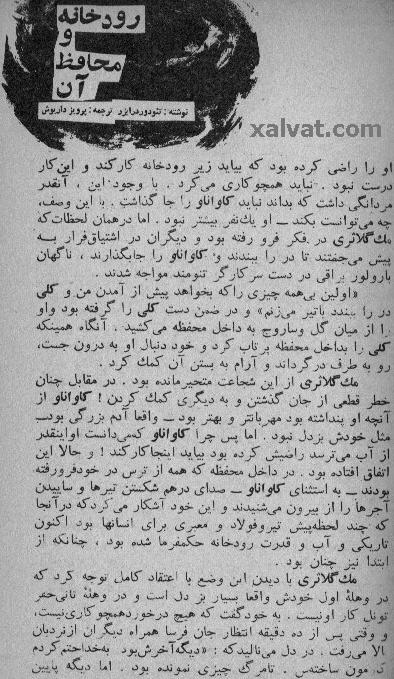 رودخانه
و
محافظ
آن
نوشته : تئودور درایزر ترجمه : پرویز داریوش
xalvat.com
او را راضی کرده بود که بیاید زیر رودخانه کار کند و این کار
درست نبود . نباید همچو کاری می‌کرد . با وجود این ، آنقدر
مردانگی داشت که بداند نباید کاواناو را جا گذاشت . با این وصف،
چه می‌توانست بکند ــ او یك نفر بیشتر نبود . اما درهمان لحظات که
مك گلاثری در فکر فرو رفته بود و دیگران در اشتیاق فرار بــه
پیش می‌جفتند تا در را ببندند و کاواناو را جا بگذارند ، ناگهان
با رولور براقی در دست سر کارگر تنومند مواجه شدند .
«اولین بی‌همه چیزی را که بخواهد پیش از آمدن من و کلی
در را ببندد با تیر می‌زنم» و در ضمن دست کلی را گرفته بود و او
را از میان گل و ساروج به داخل محفظه می‌کشید . آنگاه همینکه
کلی را بداخل محفظه پرتاب کرد و خود دنبال او به درون جست،
رو به طرف در گرداند و آرام به بستن آن کمك کرد .
مك گلاثری از این شجاعت متحیر مانده بود . در مقابل چنان
خطر قطعی از جان گذشتن و به دیگری کمك کردن ! کاواناو از
آنچه او پنداشته بود مهربانتر و بهتر بود ــ واقعا آدم بزرگی بود ــ
مثل خودش بزدل نبود . اما پس چرا کاواناو که می‌دانست او اینقدر
از آب می‌ترسد راضیش کرده بود بیاید اینجا کار کند ! و حالا این
اتفاق افتاده بود . در داخل محفظه که همه از ترس در خود فرو رفته
بودند ــ به استثنای کاواناو ــ صدای درهم شکستن تیرها و ساییدن
آجرها را از بیرون می‌شنیدند و این خود آشکار می‌کرد که در آنجا
که چند لحظه پیش تیر و فولاد و معبری برای انسانها بود اکنون
تاریکی و آب و قدرت رودخانه حکمفرما شده بود ، چنانکه از
ابتدا نیز چنان بود .
مك گلاثری با دیدن این وضع با اعتقاد کامل توجه کرد که
در وهلهٔ اول خودش واقعا بسیار بز دل است و در وهلهٔ ثانی حفر
تونل کار او نیست . به خود گفت که هیچ درخورد همچو کاری نیست،
و وقتی پس از ده دقیقه انتظار جان فرسا همراه دیگران از نردبان
بالا می‌رفت ، در دل می‌نالید که : «دیگه آخرش بود به خدا ختم کردم
مون ساخته‌س . تا مرگ چیزی نمونده بود . اما دیگه پایین